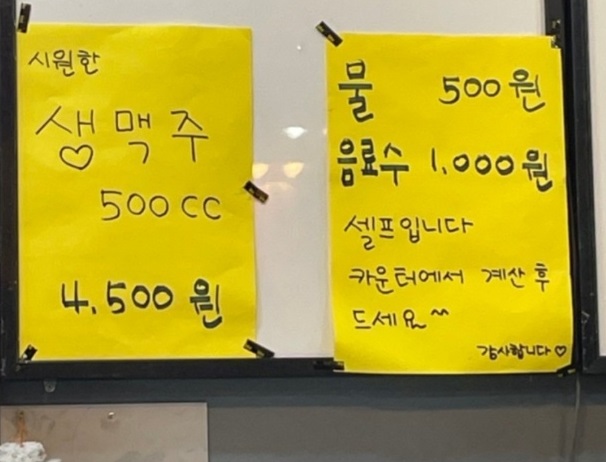 시원한
생맥주
500cc
4,500원
물 500원
음료수 1,000원
셀프입니다
카운터에서 계산 후
드세요^^
감사합니다♡